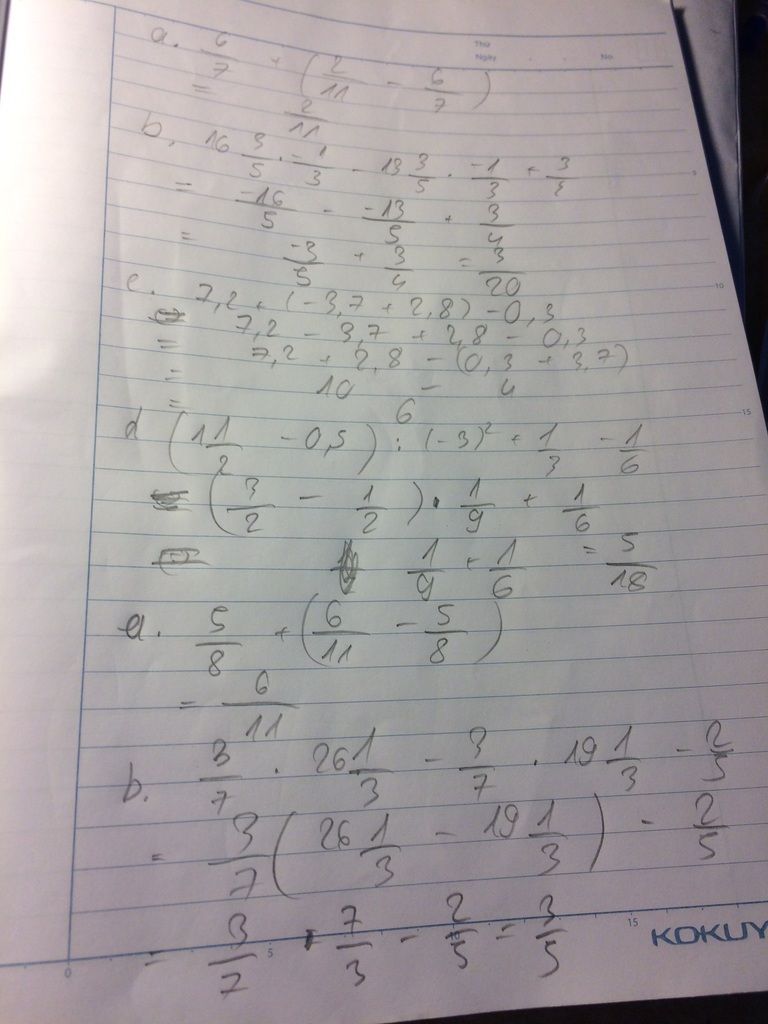 Thứ
Ngày No.
a. 6/7 + (2/11 - 6/7)
= 2/11
b, 16 3/5 · -1/3 - 13 3/5 · -1/3 + 3/4
= -16/5 - -13/5 + 3/4
= -3/5 + 3/4 = 3/20
c. 7,2 + (-3,7 + 2,8) - 0,3
= 7,2 - 3,7 + 2,8 - 0,3
= 7,2 + 2,8 - (0,3 + 3,7)
= 10 - 4
= 6
d (1 1/2 - 0,5) : (-3)² + 1/3 - 1/6
(3/2 - 1/2) · 1/9 + 1/6
1/9 + 1/6 = 5/18
a. 5/8 + (6/11 - 5/8)
= 6/11
b. 3/7 . 26 1/3 - 3/7 . 19 1/3 - 2/5
= 3/7 (26 1/3 - 19 1/3) - 2/5
= 3/7 · 7/3 - 2/5 = 3/5
5
10
15
0 5 10 15
KOKUY